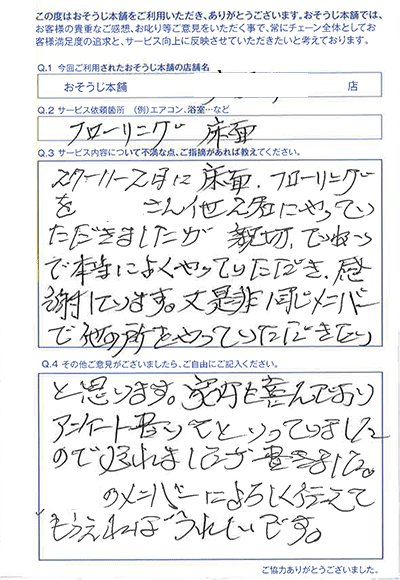 この度はおそうじ本舗をご利用いただき、ありがとうございます。おそうじ本舗では、
お客様の貴重なご感想、お叱り等ご意見をいただく事で、常にチェーン全体としてお
客様満足度の追求と、サービス向上に反映させていただきたいと考えております。
Q.1 今回ご利用されたおそうじ本舗の店舗名
おそうじ本舗 店
Q.2 サービス依頼箇所 (例)エアコン、浴室…など
フローリング 床面
Q.3 サービス内容について不満な点、ご指摘があれば教えてください。
床面、フローリング
を さん他2名にやってい
ただきましたが 親切、ていねい
で本当によくやっていただき、感
謝しています。又是非同じメンバー
で他の所をやっていただきたい
Q.4 その他ご意見がございましたら、ご自由にご記入ください。
と思います。家内も喜んでおり
アンケート書いてといっていました
ので遅れましたが書きました。
のメンバーによろしく伝えて
もらえればうれしいです。
ご協力ありがとうございました。